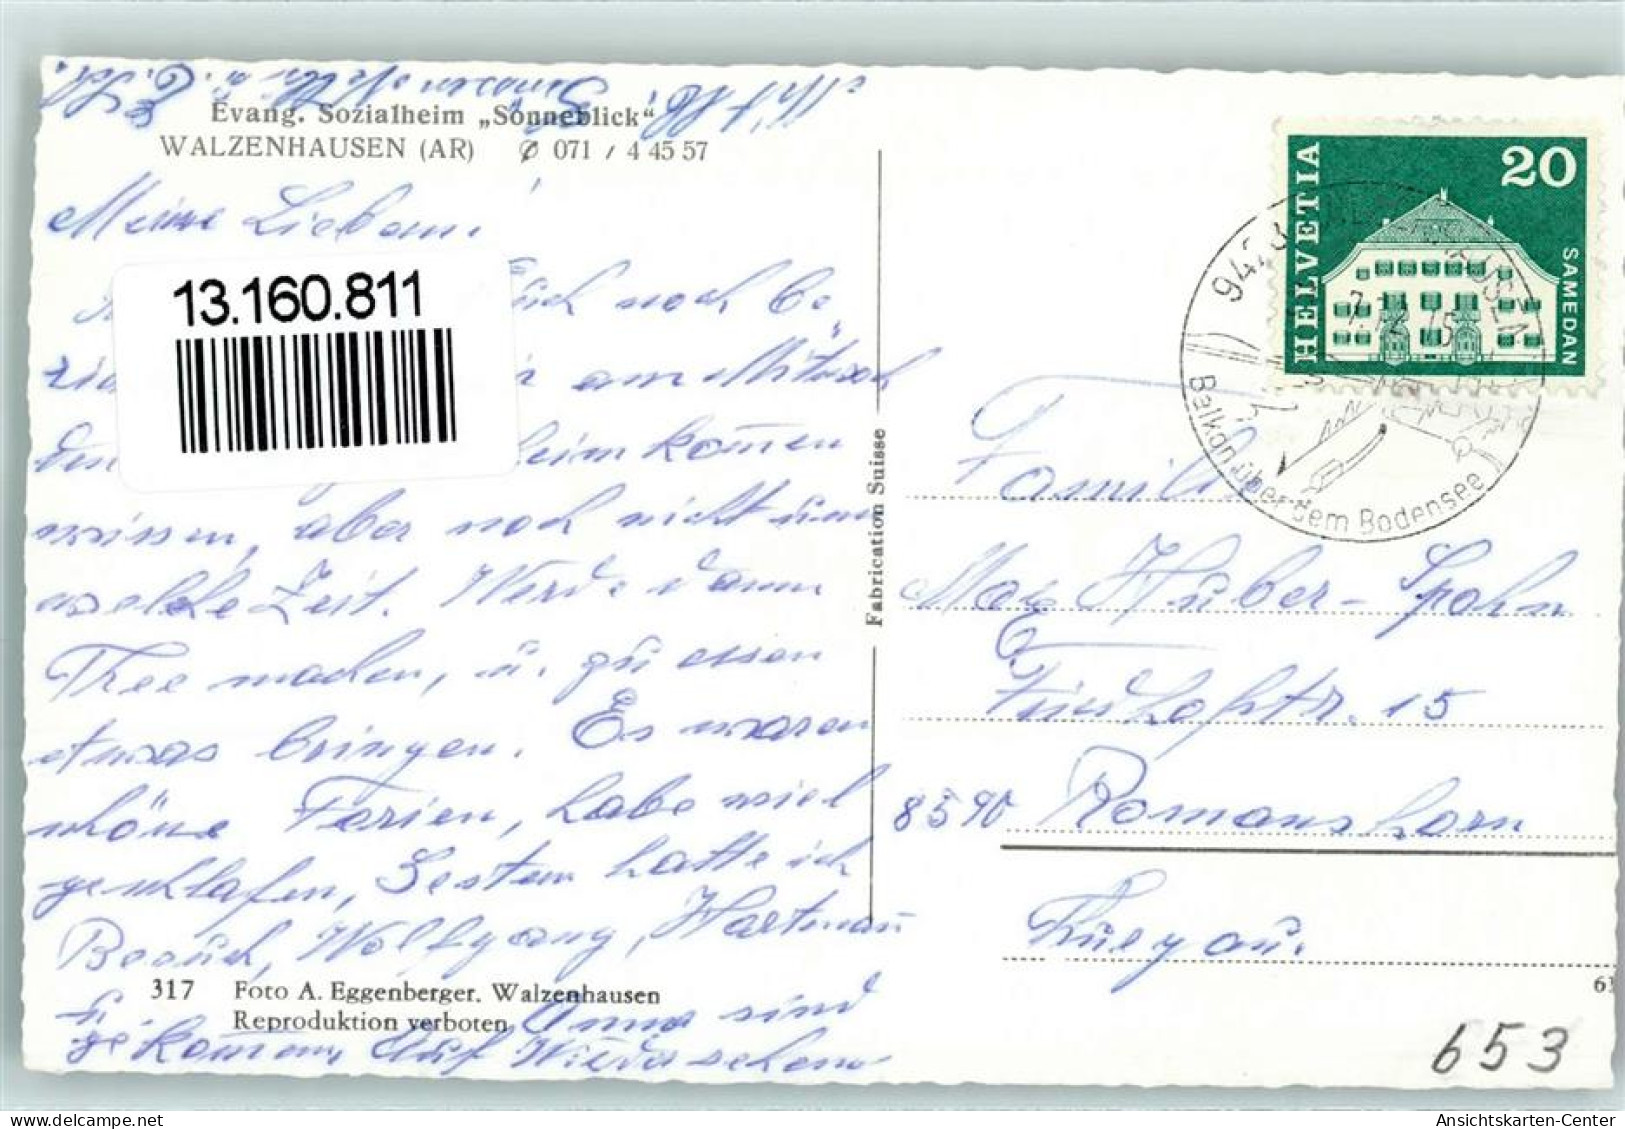 Evang. Sozialheim „Sonneblick"
WALZENHAUSEN (AR) ✆ 071 / 4 45 57
Meine Lieben.
13.160.811
noch be
am Mitwoch
heim komen
wissen, aber noch nicht um
welche Zeit. Werde dann
Thee machen, u. zu essen
etwas bringen. Es waren
schöne Ferien, habe viel
geschlafen, Gestern hatte ich
Besuch, Wolfgang, Hartman
317 Foto A. Eggenberger, Walzenhausen
Reproduktion verboten
u. Anna sind
gekommen, Auf Wiedersehen
Fabrication Suisse
HELVETIA
20
SAMEDAN
Balkon über dem Bodensee
Familie
Max Huber-Spohn
15
8590 Romanshorn
Thurgau.
653
Ansichtskarten-Center